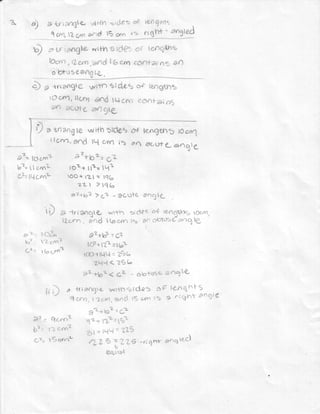 3. a) a triangle with sides of lengths
9cm, 12cm and 15cm is right-angled
b) a triangle with sides of lengths
10cm, 12cm, and 16cm contains an
obtuse angle.
c) a triangle with sides of lengths
10cm, 11cm and 14cm contains
an acute angle
i) a triangle with sides of lengths 10cm,
11cm, and 14cm is an acute angle
a²= 10cm² a²+b²=c²
b²= 11cm² 10²+11²=14²
c²= 14cm² 100+121=196
221>196
a²+b²>c² - acute angle
ii) a triangle with sides of lengths, 10cm,
12cm, and 16cm is an obtuse angle
a²= 10² a²+b²=c²
b² 12cm² 10²+12²=16²
c²= 16cm² 100+144=256
244<256
a²+b²<c² - obtuse angle
iii) a triangle with sides of lengths
9cm, 12cm, and 15cm is a right angle
a²+b²=c²
a²= 9cm² 9²+12²=15²
b²= 12cm² 81+144=225
c²= 15cm² 225=225 -right angled
equal